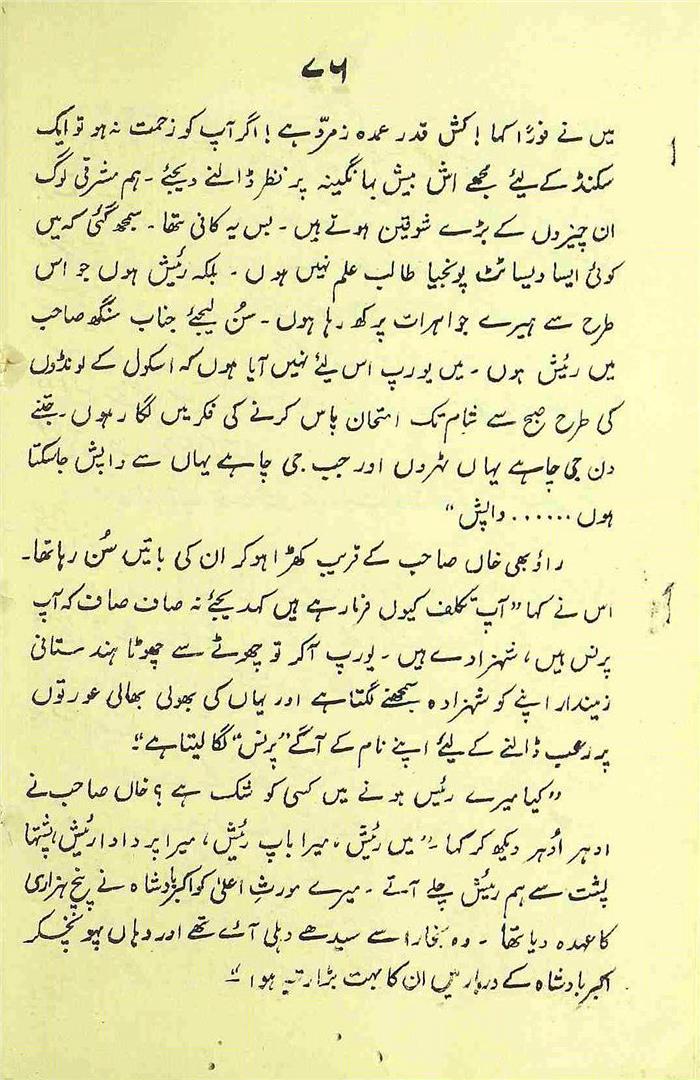 ۷۶
میں نے فورًا کہا! کس قدر عمدہ زمرّد ہے! اگر آپ کو زحمت نہ ہو تو ایک
سکنڈ کے لیئے مجھے اس بیش بہا نگینہ پر نظر ڈالنے دیجئے۔ ہم مشرقی لوگ
ان چیزوں کے بڑے شوقین ہوتے ہیں۔ بس یہ کافی تھا۔ سمجھ گئی کہ میں
کوئی ایسا ویسا ٹٹ پونجیا طالب علم نہیں ہوں۔ بلکہ رئیس ہوں جو اس
طرح سے ہیرے جواہرات پرکھ رہا ہوں۔ سُن لیجئے جناب سنگھ صاحب
میں رئیس ہوں۔ میں یورپ اس لیئے نہیں آیا ہوں کہ اسکول کے لونڈوں
کی طرح صبح سے شام تک امتحان پاس کرنے کی فکر میں لگا رہوں۔ جتنے
دن جی چاہے یہاں ٹہروں اور جب جی چاہے یہاں سے واپس جا سکتا
ہوں ...... واپس"
راؤ بھی خاں صاحب کے قریب کھڑا ہو کر ان کی باتیں سُن رہا تھا۔
اس نے کہا "آپ تکلف کیوں فرما رہے ہیں کہدیجئے نہ صاف صاف کہ آپ
پرنس ہیں، شہزادے ہیں۔ یورپ آکر تو چھوٹے سے چھوٹا ہندستانی
زمیندار اپنے کو شہزادہ سمجھنے لگتا ہے اور یہاں کی بھولی بھالی عورتوں
پر رعب ڈالنے کے لیئے اپنے نام کے آگے "پرنس" لگا لیتا ہے"۔
"کیا میرے رئیس ہونے میں کسی کو شک ہے؟ خاں صاحب نے
ادہر اُدہر دیکھ کر کہا۔ "میں رئیس، میرا باپ رئیس، میرا پردادا رئیس، پشتہا
پشت سے ہم رئیس چلے آتے۔ میرے مورث اعلیٰ کو اکبر بادشاہ نے پنج ہزاری
کا عہدہ دیا تھا۔ وہ بخارا سے سیدھے دہلی آئے تھے اور وہاں پہونچکر
اکبر بادشاہ کے دربار میں ان کا بہت بڑا رتبہ ہوا"۔